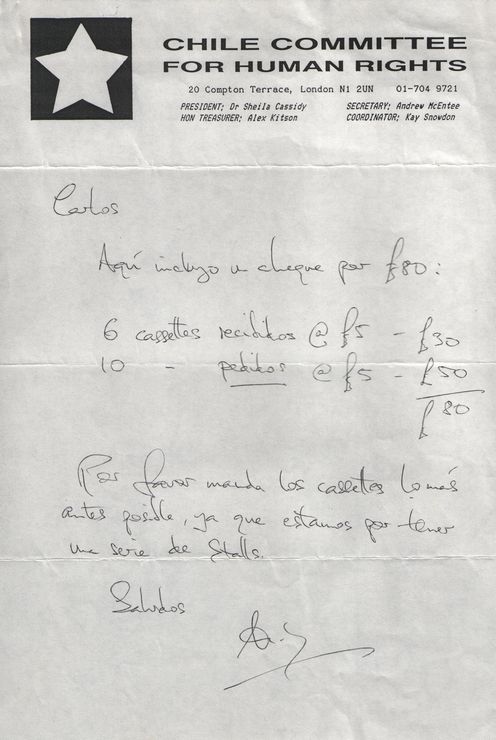 CHILE COMMITTEE
FOR HUMAN RIGHTS
20 Compton Terrace, London N1 2UN 01-704 9721
PRESIDENT; Dr Sheila Cassidy SECRETARY; Andrew McEntee
HON TREASURER; Alex Kitson COORDINATOR; Kay Snowdon
Carlos
Aquí incluyo un cheque por £80:
6 cassettes recibidos @ £5 - £30
10 - pedidos @ £5 - £50
£80
Por favor manda los cassettes lo más
antes posible, ya que estamos por tener
una serie de Stalls.
Saludos